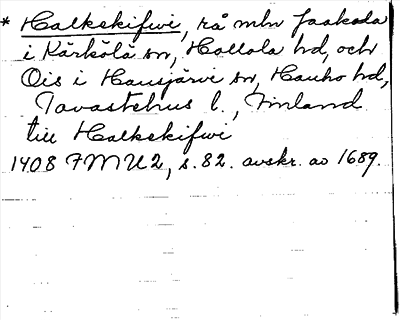 * Halkskifwi, rå mln Jaakoda
i Kärkölä sn, Hollola hd, och
Ois i Hausjärvi sn, Hauho hd,
Tavastehus l., Finland
till Halkskifwi
1408 FMU 2, s. 82. avskr. av 1689.